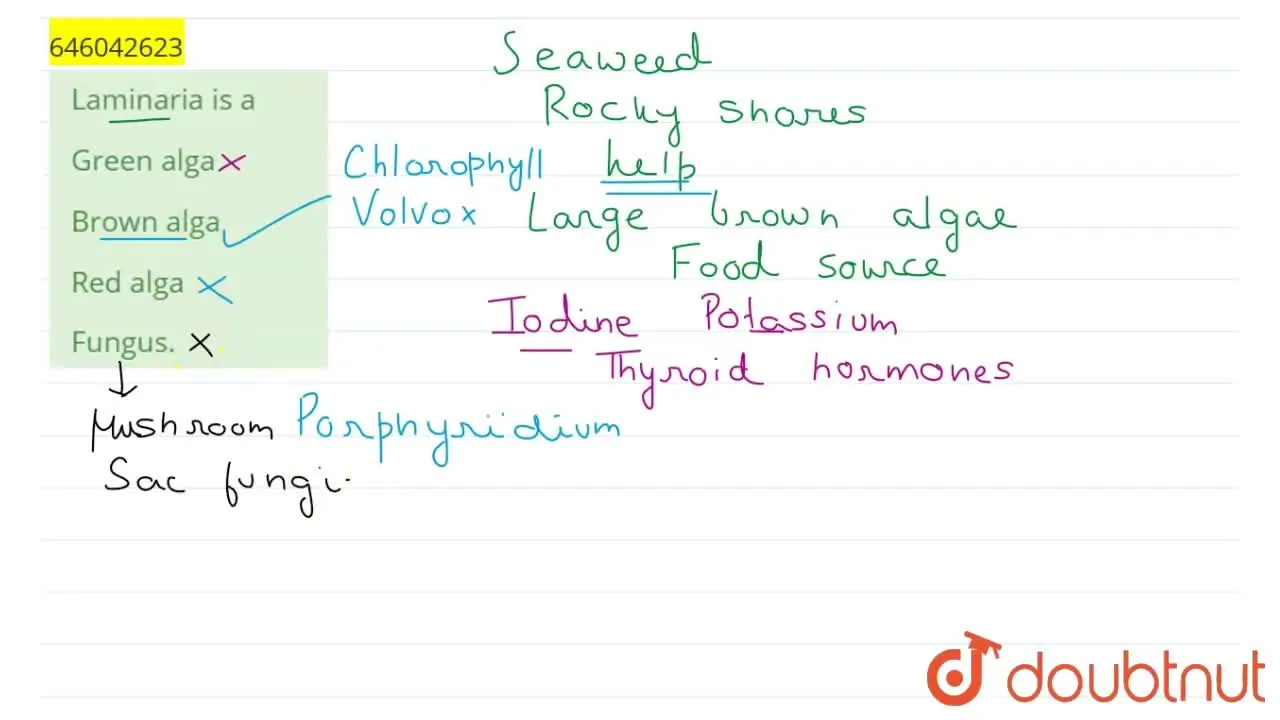 646042623
Laminaria is a
Green alga
Brown alga
Red alga
Fungus.
Seaweed
Rocky shores
Chlorophyll help
Volvox Large brown algae
Food source
Iodine Potassium
Thyroid hormones
Mushroom Porphyridium
Sac fungi
doubtnut